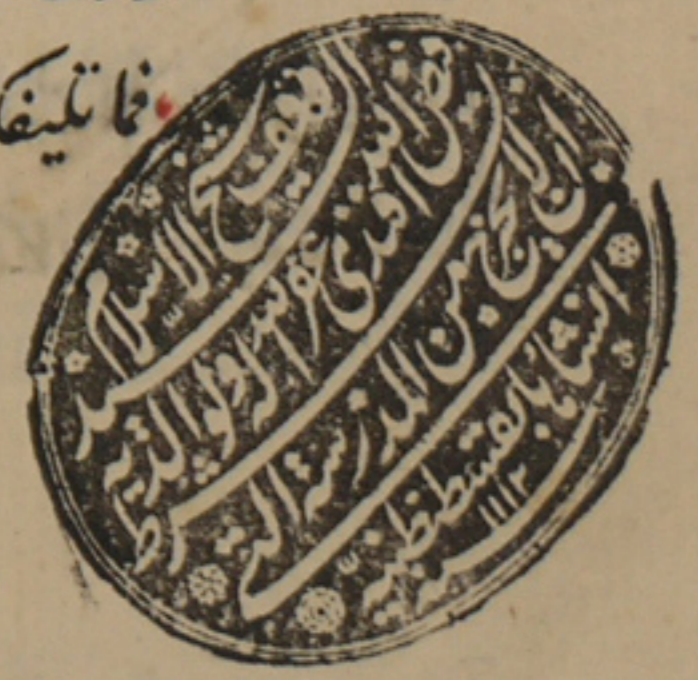 فما
وقف شيخ الاسلام السيد
فيض الله افندى غفر الله له ولوالديه بشرط
ان لا يخرج من المدرسة التى
انشاها بقسطنطينية سنه ١١١٢